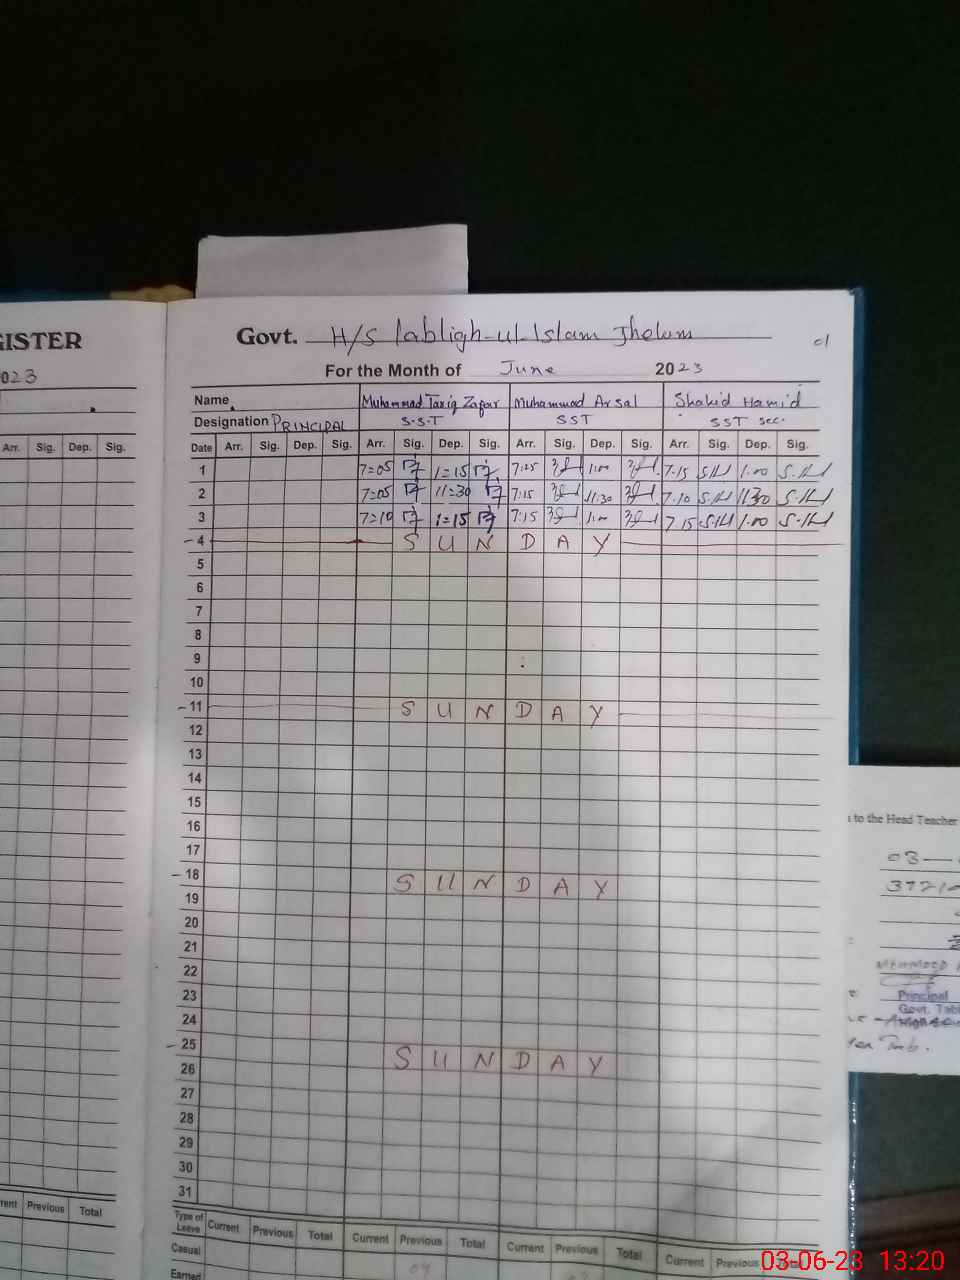 GISTER
023
Arr. Sig. Dep. Sig.
Previous Total
Govt. H/S Tabligh-ul-Islam Jhelum
01
For the Month of June 2023
Name Muhammad Tariq Zafar Muhammad Arsal Shahid Hamid
Designation PRINCIPAL S.S.T SST SST sec.
Date Arr. Sig. Dep. Sig. Arr. Sig. Dep. Sig. Arr. Sig. Dep. Sig. Arr. Sig. Dep. Sig.
1 7=05 1=15 7:25 1:00 7.15 S.H 1.00 S.H
2 7=05 11=30 7:15 11:30 7.10 S.H 11.30 S.H
3 7=10 1=15 7:15 1:00 7.15 S.H 1.00 S.H
4 SUNDAY
5
6
7
8
9
10
11 SUNDAY
12
13
14
15
16
17
18 SUNDAY
19
20
21
22
23
24
25 SUNDAY
26
27
28
29
30
31
Type of Leave Current Previous Total Current Previous Total Current Previous Total Current Previous Total
Casual 04
Earned
to the Head Teacher
03
Principal
Govt.
03-06-23 13:20